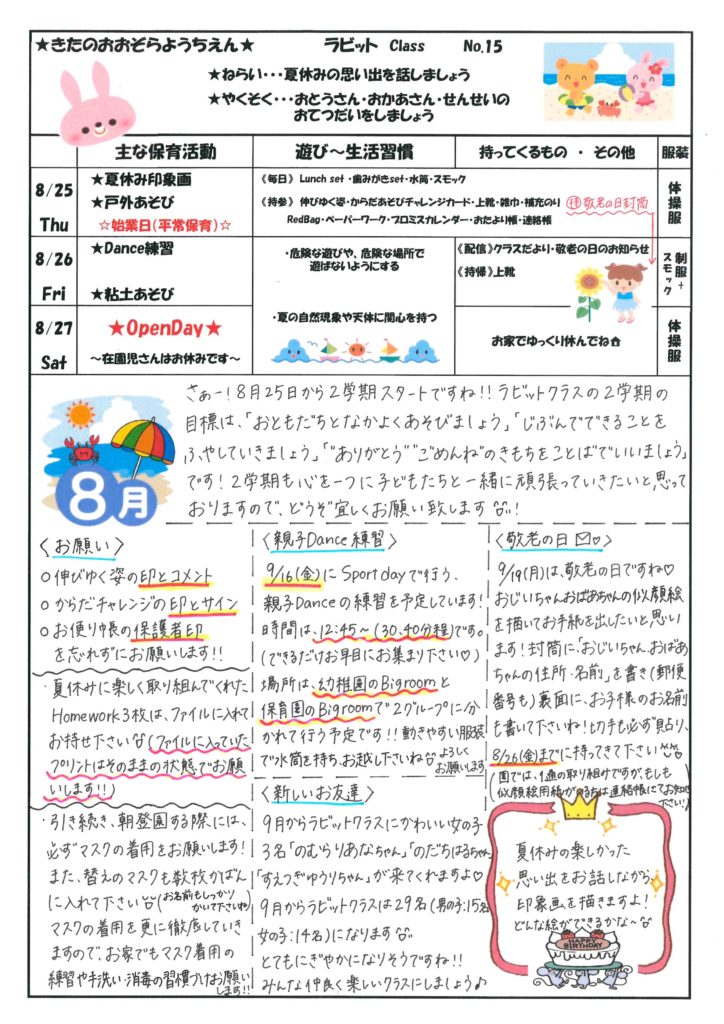 ★きたのおおぞらようちえん★ ラビット Class No.15
★ねらい・・・夏休みの思い出を話しましょう
★やくそく・・・おとうさん・おかあさん・せんせいの
おてつだいをしましょう
主な保育活動 遊び～生活習慣 持ってくるもの ・ その他 服装
8/25
Thu
★夏休み印象画
★戸外あそび
☆始業日(平常保育)☆
《毎日》 Lunch set ・歯みがきset・水筒・スモック
《持参》 伸びゆく姿・からだあそびチャレンジカード・上靴・雑巾・補充のり
RedBag・ペーパーワーク・プロミスカレンダー・おたより帳・連絡帳
敬老の日封筒
体操服
8/26
Fri
★Dance練習
★粘土あそび
・危険な遊びや、危険な場所で
遊ばないようにする
《配信》クラスだより・敬老の日のお知らせ
《持帰》上靴
制服+
スモック
8/27
Sat
★OpenDay★
～在園児さんはお休みです～
・夏の自然現象や天体に関心を持つ
お家でゆっくり休んでね
体操服
8月
さぁー!8月25日から2学期スタートですね!!ラビットクラスの2学期の
目標は、「おともだちとなかよくあそびましょう」「じぶんでできることを
ふやしていきましょう」「"ありがとう""ごめんね"のきもちをことばでいいましょう」
です!2学期も心を一つに子どもたちと一緒に頑張っていきたいと思って
おりますので、どうぞ宜しくお願い致します!
〈お願い〉
○伸びゆく姿の印とコメント
○からだチャレンジの印とサイン
○お便り帳の保護者印
を忘れずにお願いします!!
・夏休みに楽しく取り組んでくれた
Homework3枚は、ファイルに入れて
お持せ下さいな(ファイルに入っていた
プリントはそのままの状態でお願
いします!!)
・引き続き、朝登園する際には、
必ずマスクの着用をお願いします!
また、替えのマスクも数枚かばん
に入れて下さい(お名前もしっかり
かいて下さいね)
マスクの着用を更に徹底していき
ますので、お家でもマスク着用の
練習や手洗い・消毒の習慣づけお願い
します!!
〈親子Dance練習〉
9/16(金)にSportdayで行う、
親子Danceの練習を予定しています!
時間は、12:45～(30.40分程)です。
(できるだけお早目にお集まり下さい♡)
場所は、幼稚園のBigroomと
保育園のBigroomで2グループに分
かれて行う予定です!!動きやすい服装
で水筒を持ち、お越し下さいね よろしく
お願いします
〈新しいお友達〉
9月からラビットクラスにかわいい女の子
3名「のむらりあなちゃん」「のだちはるちゃん」
「すえつぎゆうりちゃん」が来てくれますよ♡
9月からラビットクラスは29名(男の子:15名
女の子:14名)になります
とてもにぎやかになりそうですね!!
みんな仲良く楽しいクラスにしましょう♪
〈敬老の日✉♡〉
9/19(月)は、敬老の日ですね♡
おじいちゃんおばあちゃんの似顔絵
を描いてお手紙を出したいと思い
ます!封筒に、「おじいちゃん.おばあ
ちゃんの住所・名前」を書き(郵便
番号も)裏面に、お子様のお名前
も書いて下さいね!切手も必ず貼り、
8/26(金)までに持ってきて下さい
(園では、1通の取り組みですが、もしも
似顔絵用紙がいる方は連絡帳にてお知らせ
下さい!)
夏休みの楽しかった
思い出をお話しながら、
印象画を描きますよ!
どんな絵ができるかな～
HAPPY
BIRTHDAY